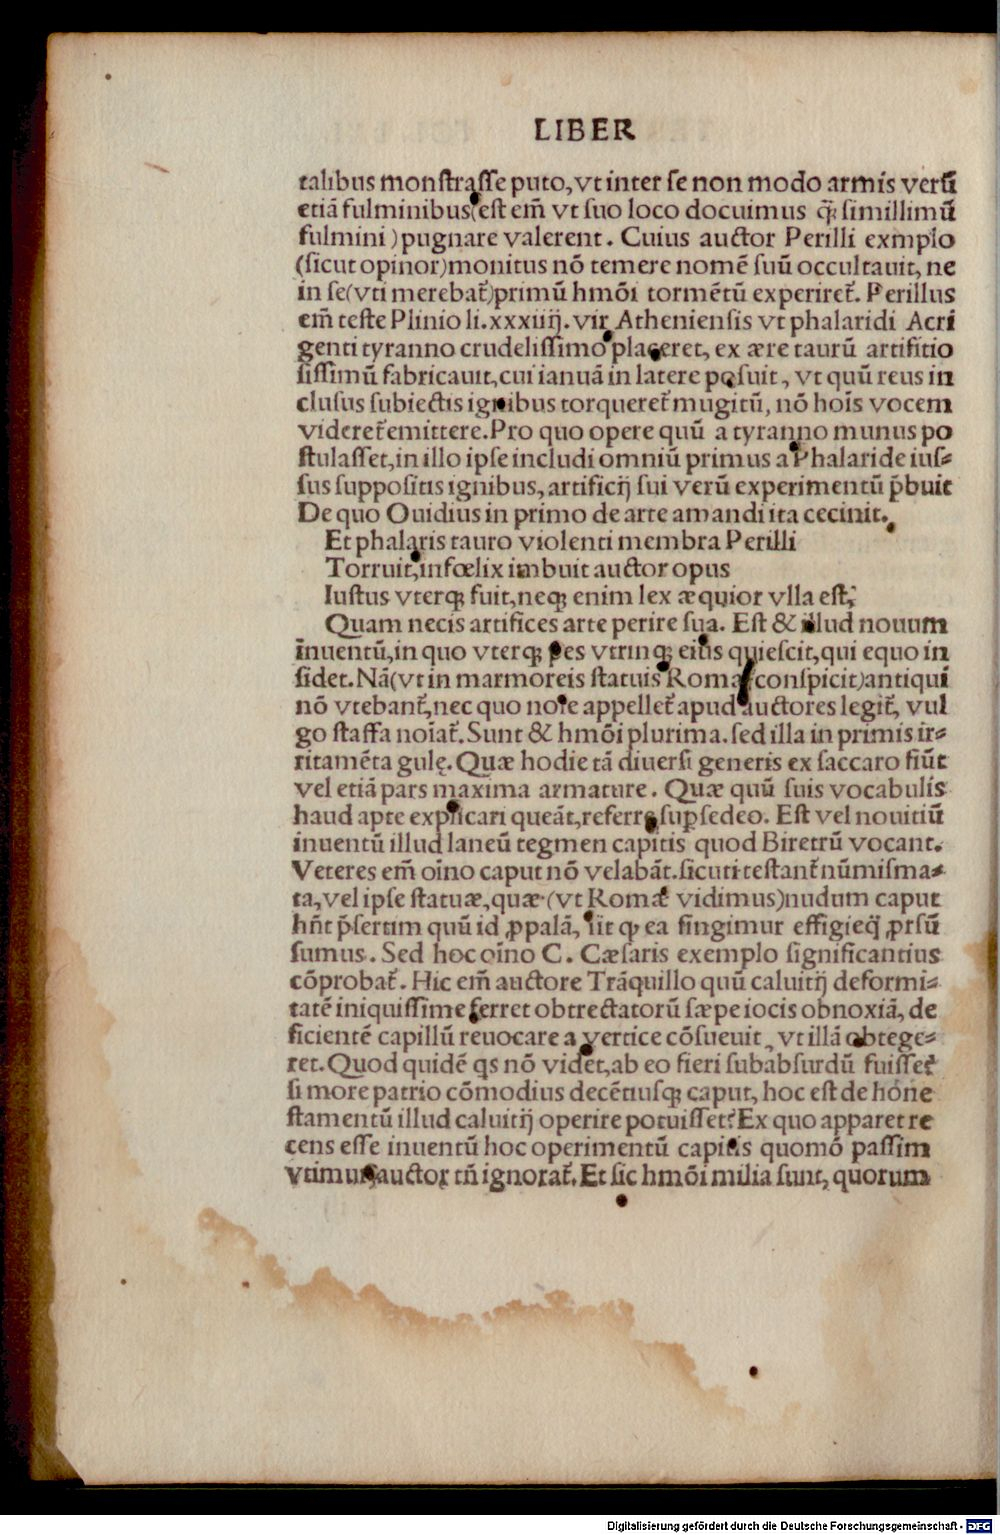 LIBER
talibus monstrasse puto, vt inter se non modo armis verū
etiā fulminibus(est em̄ vt suo loco docuimus q̄ simillimū
fulmini) pugnare valerent. Cuius auctor Perilli exmplo
(sicut opinor)monitus nō temere nomē suū occultauit, ne
in se(vti merebat᷑)primū hmōi tormētū experiret᷑. Perillus
em̄ teste Plinio li.xxxiiij. vir Atheniensis vt phalaridi Acri
genti tyranno crudelissimo placeret, ex ære taurū artifitio
sissimū fabricauit, cui ianuā in latere posuit, vt quū reus in
clusus subiectis ignibus torqueret᷑ mugitū, nō hoīs vocem
videret᷑ emittere. Pro quo opere quū a tyranno munus po
stulasset, in illo ipse includi omniū primus a Phalaride ius-
sus suppositis ignibus, artificij sui verū experimentū p̄buit
De quo Ouidius in primo de arte amandi ita cecinit.
Et phalaris tauro violenti membra Perilli
Torruit, infœlix imbuit auctor opus
Iustus vterq; fuit, neq; enim lex æquior vlla est,
Quam necis artifices arte perire sua. Est & illud nouum
inuentū, in quo vterq; pes vtrinq; eius quiescit, qui equo in
sidet. Nā(vt in marmoreis statuis Romæ conspicit)antiqui
nō vtebant᷑, nec quo noīe appellet᷑ apud auctores legit᷑, vul
go staffa noīat᷑. Sunt & hmōi plurima. sed illa in primis ir-
ritamēta gulę. Quæ hodie tā diuersi generis ex saccaro fiūt
vel etiā pars maxima armature. Quæ quū suis vocabulis
haud apte explicari queāt, referre supsedeo. Est vel nouitiū
inuentū illud laneū tegmen capitis quod Biretrū vocant.
Veteres em̄ oīno caput nō velabāt. sicuti testant᷑ nūmisma-
ta, vel ipse statuæ, quæ (vt Romæ vidimus)nudum caput
hn̄t p̄sertim quū id ꝓpalā, iit ꝙ ea fingimur effigieq̄ ꝓrsū
sumus. Sed hoc oīno C. Cæsaris exemplo significantius
cōprobat᷑. Hic em̄ auctore Trāquillo quū caluitij deformi-
tatē iniquissime ferret obtrectatorū sæpe iocis obnoxiā, de
ficientē capillū reuocare a vertice cōsueuit, vt illā obtege-
ret. Quod quidē qs nō videt, ab eo fieri subabsurdū fuisset
si more patrio cōmodius decētiusq; caput, hoc est de hone
stamentū illud caluitij operire potuisset? Ex quo apparet re
cens esse inuentū hoc operimentū capitis quomō passim
vtimur, auctor tn̄ ignorat᷑. Et sic hmōi milia sunt, quorum
Digitalisierung gefördert durch die Deutsche Forschungsgemeinschaft - DFG